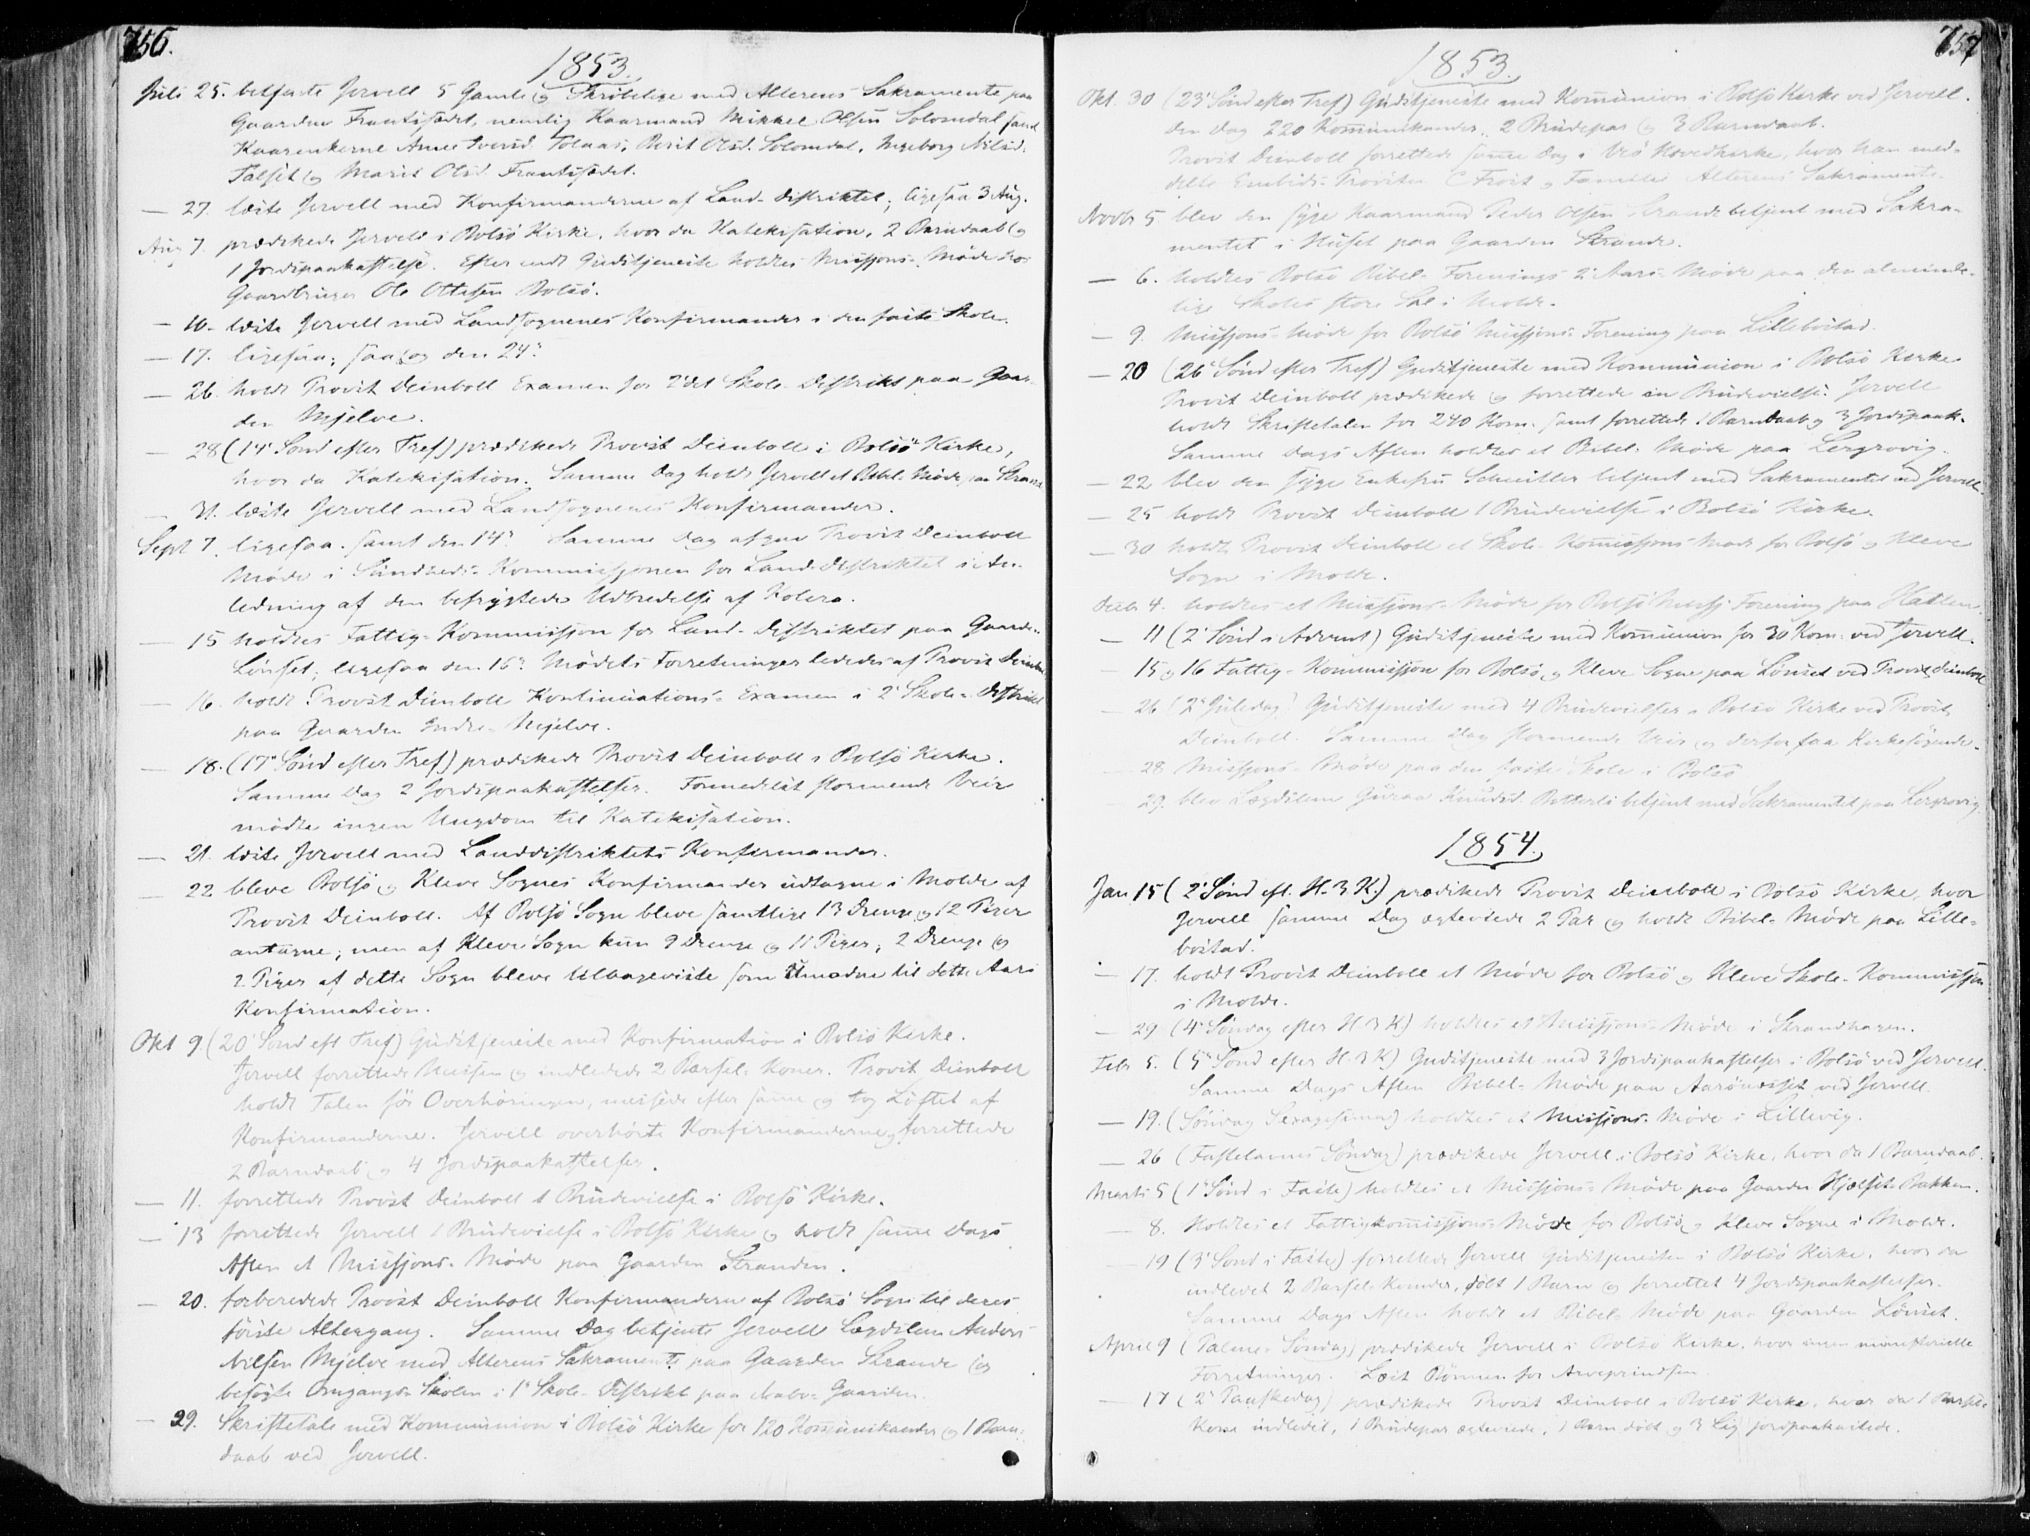 756.
1853.
Juli 25. betjente Jervell 5 Gamle og Skrøbelige med Alterens Sakramente paa
Gaarden Frantisædet, nemlig Kaarmand Mikkel Olsen Solomdal samt
Kaarenkerne Anne Iversd. Tolaas, Berit Olsd. Solomdal, Ingeborg Nilsd.
Talset og Marit Olsd. Frantisædet.
— 27. læste Jervell med Konfirmanderne af Land-Distriktet; ligesaa 3 Aug.
Aug 7. prædikede Jervell i Bolsö Kirke, hvor da Katekisation, 2 Barndaab og
1 Jordspaakastelse. Efter endt Gudstjeneste holdtes Missjons-Möde hos
Gaardbruger Ole Ottesen Bolsö.
— 10. læste Jervell med Landsognenes Konfirmander i den faste Skole.
— 17. ligesaa; saa og den 24de
— 26. holdt Provst Deinboll Examen for 2det Skole-Distrikt paa Gaar-
den Mjelve.
— 28 (14 Sönd efter Tref) prædikede Provst Deinboll i Bolsö Kirke,
hvor da Katekisation. Samme Dag holdt Jervell et Bibel-Möde paa Strand
— 31. læste Jervell med Landsognenes Konfirmander.
Sept 7. ligesaa. samt den 14de Samme Dag afgav Provst Deinboll
Möde i Sundheds-Kommissjonen for Land-Distriktet i An-
ledning af den befrygtede Udbredelse af Kolera.
— 15 holdtes Fattig-Kommission for Land-Distriktet paa Gaarden
Lönset; ligesaa den 16de Mödets Forretninger lededes af Provst Deinboll
— 16. holdt Provst Deinboll Kontinuations-Examen i 2 Skole-Distrikt
paa Gaarden Indre-Mjelve.
— 18. (17 Sönd efter Tref) prædikede Provst Deinboll i Bolsö Kirke.
Samme Dag 2 Jordspaakastelser. Formedelst stormende Veir
mödte ingen Ungdom til Katekisation.
— 21. læste Jervell med Landdistriktets Konfirmander.
— 22 bleve Bolsö og Kleve Sognes Konfirmander udtagne i Molde af
Provst Deinboll. Af Bolsö Sogn bleve samtlige 13 Drenge og 12 Piger
antagne; men af Kleve Sogn kun 9 Drenge og 11 Piger; 2 Drenge og
2 Piger af dette Sogn bleve tilbageviste som umodne til dette Aars
Konfirmation.
Okt 9 (20 Sönd eft Tref) Gudstjeneste med Konfirmation i Bolsö Kirke.
Jervell forrettede Messen og indledede 2 Barsel-Koner. Provst Deinboll
holdt Talen för Overhöringen, messede efter samme og tog Löftet af
Konfirmanderne. Jervell overhörte Konfirmanderne og forrettede
2 Barndaab og 4 Jordspaakastelser.
— 11. forrettede Provst Deinboll 1 Brudevielse i Bolsö Kirke.
— 13 forrettede Jervell 1 Brudevielse i Bolsö Kirke og holdt samme Dags
Aften et Missjons-Möde paa Gaarden Stranden.
— 20. forberedede Provst Deinboll Konfirmanderne af Bolsö Sogn til deres
förste Altergang. Samme Dag betjente Jervell Lægdslem Anders
Nilsen Mjelve med Alterens Sakramente paa Gaarden Strande og
besögte Omgangs-Skolen i 1 Skole-Distrikt paa Nabo-Gaarden.
— 29. Skriftetale med Kommunion i Bolsö Kirke for 120 Kommunikander og 1 Barn-
daab ved Jervell.
757
1853.
Okt. 30 (23 Sönd efter Tref) Gudstjeneste med Kommunion i Bolsö Kirke ved Jervell.
den Dag 220 Kommunikander, 2 Brudepar og 3 Barndaab.
Provst Deinboll forrettede samme Dag i Veö Hovedkirke, hvor han med-
delte Embeds-Provsten C Frost og Familie Alterens Sakramente.
Novbr 5. blev den syge Kaarmand Peder Olsen Strande betjent med Sakra-
mentet i Huset paa Gaarden Strande.
— 6. holdtes Bolsö Bibel-Forenings 2 Aars-Möde paa den alminde-
lige Skoles store Sal i Molde.
— 9. Missjons-Möde for Bolsö Missjons-Forening paa Lillebostad.
— 20 (26 Sönd efter Tref) Gudstjeneste med Kommunion i Bolsö Kirke
Provst Deinboll prædikede og forrettede en Brudevielse. Jervell
holdt Skriftetalen for 240 Kom. samt forrettede 1 Barndaab og 3 Jordspaak.
Samme Dags Aften holdtes et Bibel-Möde paa Lergrovig.
— 22 blev den syge Enkefru Schnitler betjent med Sakramentet ved Jervell.
— 25 holdt Provst Deinboll 1 Brudevielse i Bolsö Kirke.
— 30 holdt Provst Deinboll et Skole-Kommissjons Möde for Bolsö og Kleve
Sogn i Molde.
Decbr 4. holdtes et Missjons-Möde for Bolsö Missj. Forening paa Hatlen.
— 11 (2 Sönd i Advent) Gudstjeneste med Kommunion for 30 Kom. ved Jervell.
— 15 og 16 Fattig-Kommissjon for Bolsö og Kleve Sogne paa Lönset ved Provst Deinboll
— 26 (2 Juledag) Gudstjeneste med 4 Brudevielser i Bolsö Kirke ved Provst
Deinboll. Samme Dag stormende Veir og derfor faa Kirkesögende.
— 28 Missjons-Möde paa den faste Skole i Bolsö
— 29. blev Lægdslem Guroe Knudsd. Rotterli betjent med Sakramentet paa Lergrovig.
1854.
Jan 15 (2 Sönd eft. H. 3 K.) prædikede Provst Deinboll i Bolsö Kirke, hvor
Jervell samme Dag ægteviede 2 Par og holdt Bibel-Möde paa Lille-
bostad.
— 17. holdt Provst Deinboll et Möde for Bolsö og Kleve Skole-Kommissjon
i Molde.
— 29 (4 Söndag efter H 3 K) holdtes et Missjons-Möde i Strandhagen.
Febr 5. (5 Sönd efter H. 3 K) Gudstjeneste med 3 Jordspaakastelser i Bolsö ved Jervell.
Samme Dags Aften Bibel-Möde paa Aarönæsset ved Jervell.
— 19. (Söndag Sexagesima) holdtes et Missjons-Möde i Lillevig.
— 26 (Fastelavns Söndag) prædikede Jervell i Bolsö Kirke, hvor da 1 Barndaab.
Marts 5 (1 Sönd i Faste) holdtes et Missjons-Möde paa Gaarden Hjelset-Bakken.
— 8. Holdtes et Fattigkommissjons-Möde for Bolsö og Kleve Sogne i Molde.
19 (3 Sönd i Faste) forrettede Jervell Gudstjenesten i Bolsö Kirke, hvor da
indledet 2 Barsel-Kvinder, döbt 1 Barn og forrettet 4 Jordspaakastelser.
Samme Dags Aften holdt et Bibel-Möde paa Gaarden Lönset.
April 9 (Palme-Söndag) prædikede Jervell i Bolsö Kirke, hvor ingen ministerielle
Forretninger. Læst Bönnen for Arveprindsen.
— 17 (2 Paaskedag) prædikede Provst Deinboll i Bolsö Kirke, hvor da 1 Barsel-
Kone indledet, 1 Brudepar ægteviede, 1 Barn döbt og 3 Lig jordspaakastede.